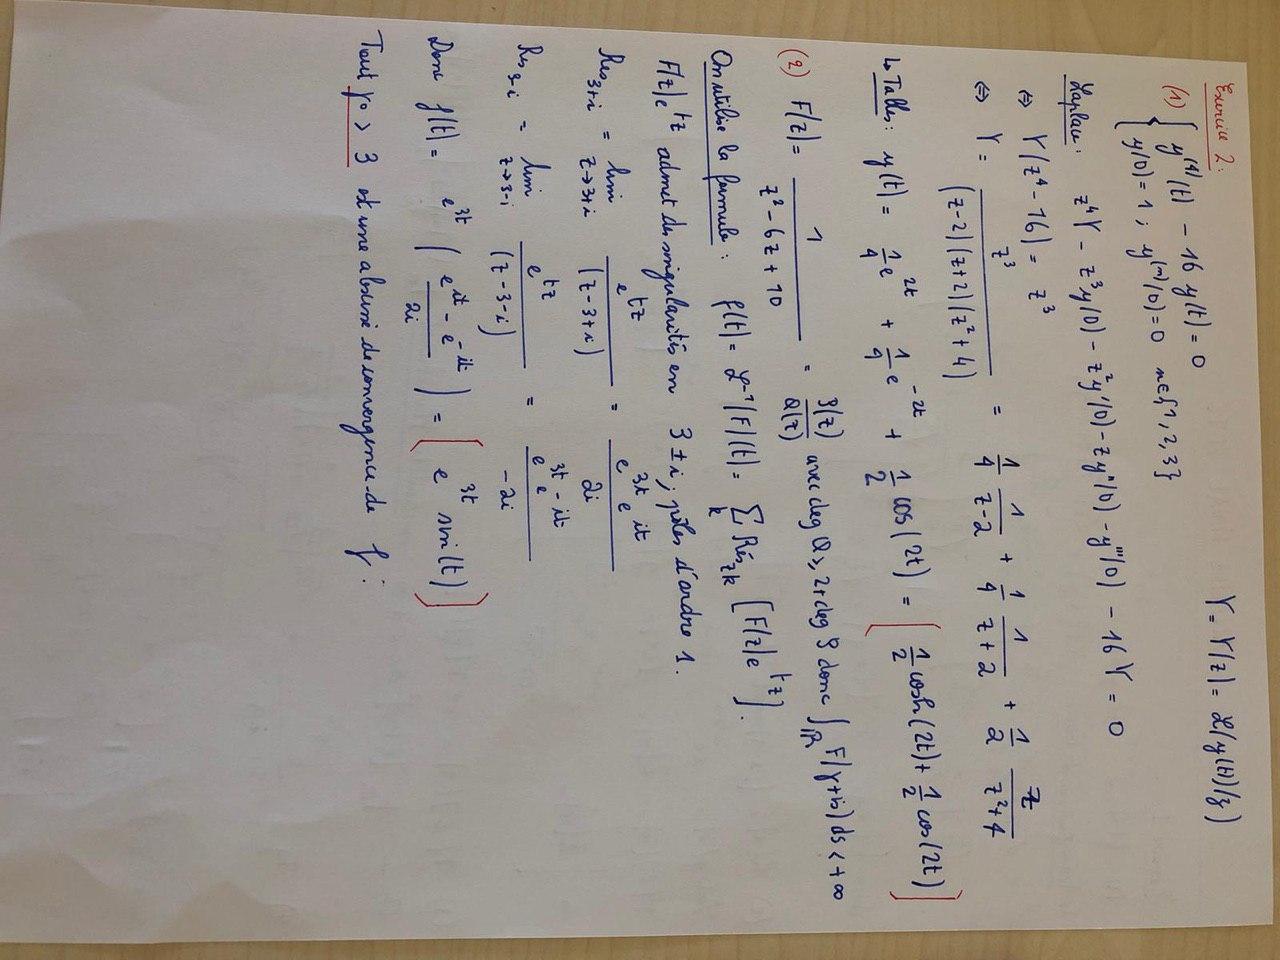 Exercice 2:
Y = Y(z) = ℒ(y(t)/z)
(1) { y⁽⁴⁾(t) - 16 y(t) = 0
y(0) = 1 ; y⁽ⁿ⁾(0) = 0 n∈{1, 2, 3}
Laplace: z⁴Y - z³y(0) - z²y'(0) - zy''(0) - y'''(0) - 16Y = 0
⇔ Y(z⁴ - 16) = z³
⇔ Y = z³ / ((z-2)(z+2)(z²+4)) = 1/4 1/(z-2) + 1/4 1/(z+2) + 1/2 z/(z²+4)
↳ Tables: y(t) = 1/4 e^{2t} + 1/4 e^{-2t} + 1/2 cos(2t) = [1/2 cosh(2t) + 1/2 cos(2t)]
(2) F(z) = 1/(z² - 6z + 10) = P(z)/Q(z) avec deg Q ≥ 2 + deg P donc ∫_ℝ F(γ+is) ds < +∞
On utilise la formule: f(t) = ℒ⁻¹(F)(t) = Σ_k Rés_{zk} [F(z)e^{tz}].
F(z)e^{tz} admet des singularités en 3 ± i, pôles d'ordre 1.
Res_{3+i} = lim_{z→3+i} e^{tz}/(z-3+i) = e^{3t} e^{it}/2i
Res_{3-i} = lim_{z→3-i} e^{tz}/(z-3-i) = e^{3t} e^{-it}/-2i
Donc f(t) = e^{3t} ((e^{it} - e^{-it})/2i) = [e^{3t} sin(t)]
Tout γ₀ > 3 est une abscisse de convergence de f :